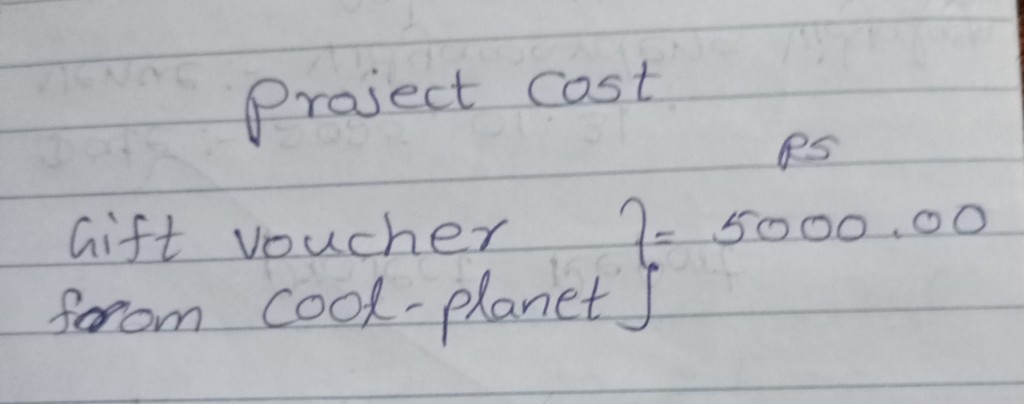 Project Cost
RS
Gift voucher } = 5000.00
from Cool-planet